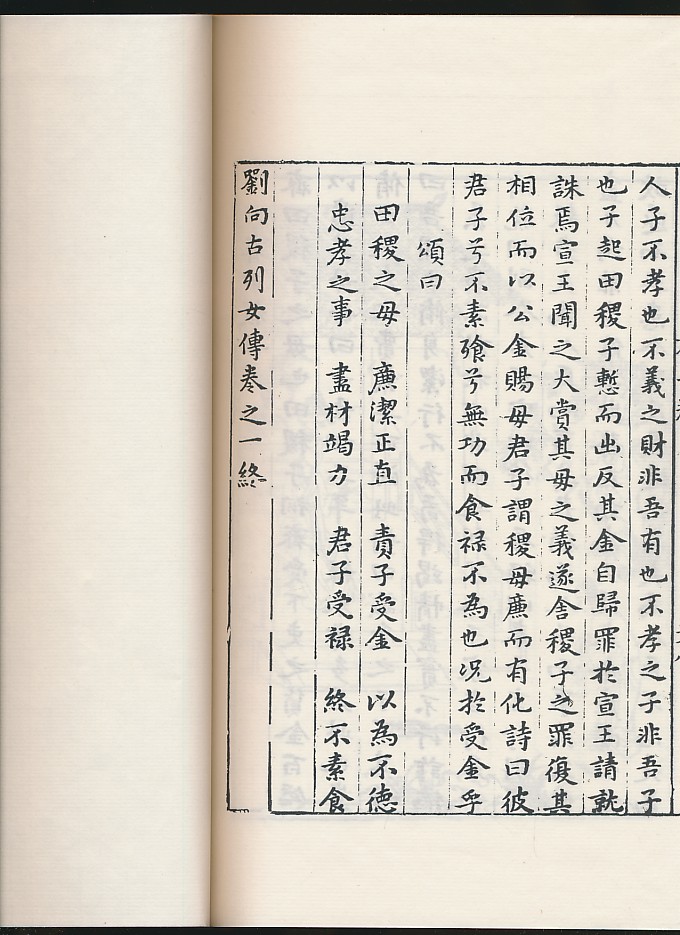 人子不孝也不義之財非吾有也不孝之子非吾子
也子起田稷子慙而出反其金自歸罪於宣王請就
誅焉宣王聞之大賞其母之義遂舍稷子之罪復其
相位而以公金賜母君子謂稷母廉而有化詩曰彼
君子兮不素飱兮無功而食禄不為也况於受金乎
頌曰
田稷之母 廉潔正直 責子受金 以為不德
忠孝之事 盡材竭力 君子受禄 終不素食
劉向古列女傳卷之一終